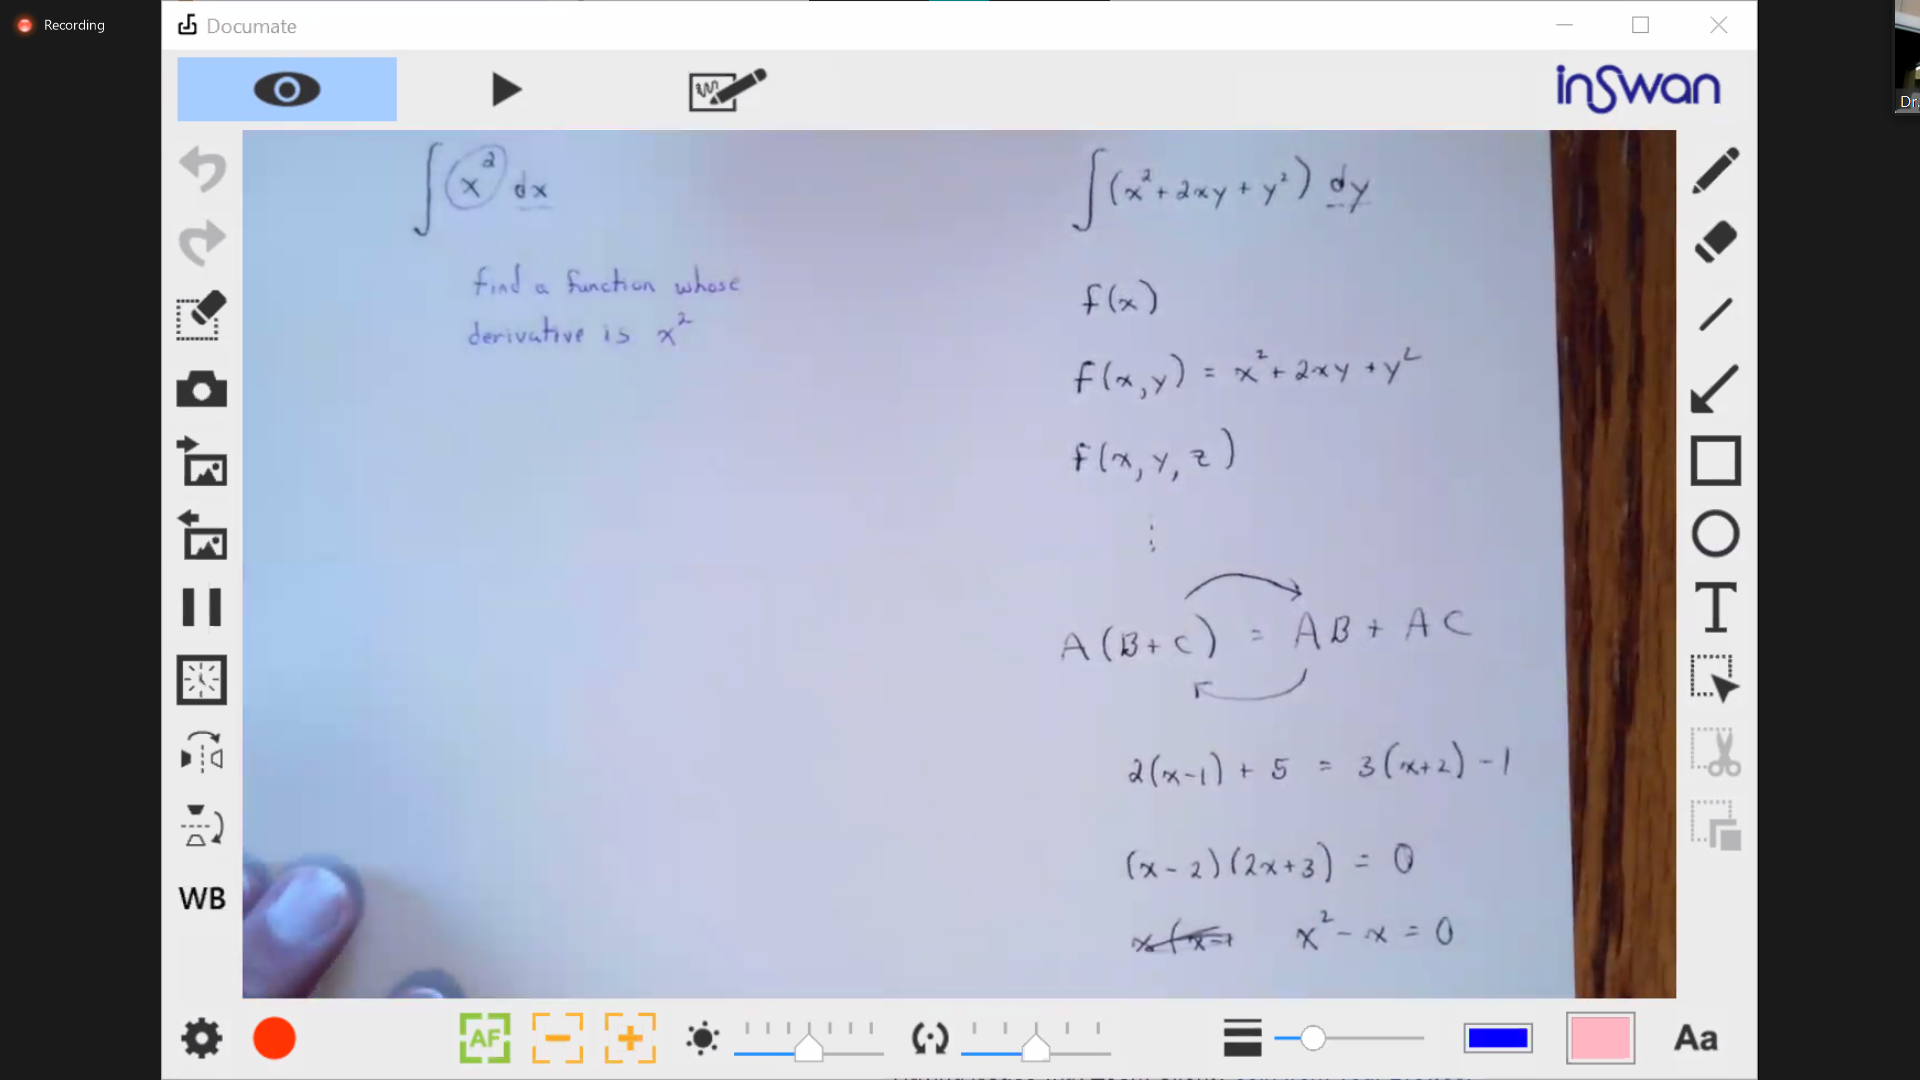 Recording
Documate
inswan
Dr.
∫ x² dx
find a function whose
derivative is x²
∫ (x² + 2xy + y²) dy
f(x)
f(x,y) = x² + 2xy + y²
f(x, y, z)
⋮
A(B+C) = AB + AC
2(x-1) + 5 = 3(x+2) - 1
(x-2)(2x+3) = 0
x² - x = 0
WB
T
AF
Aa